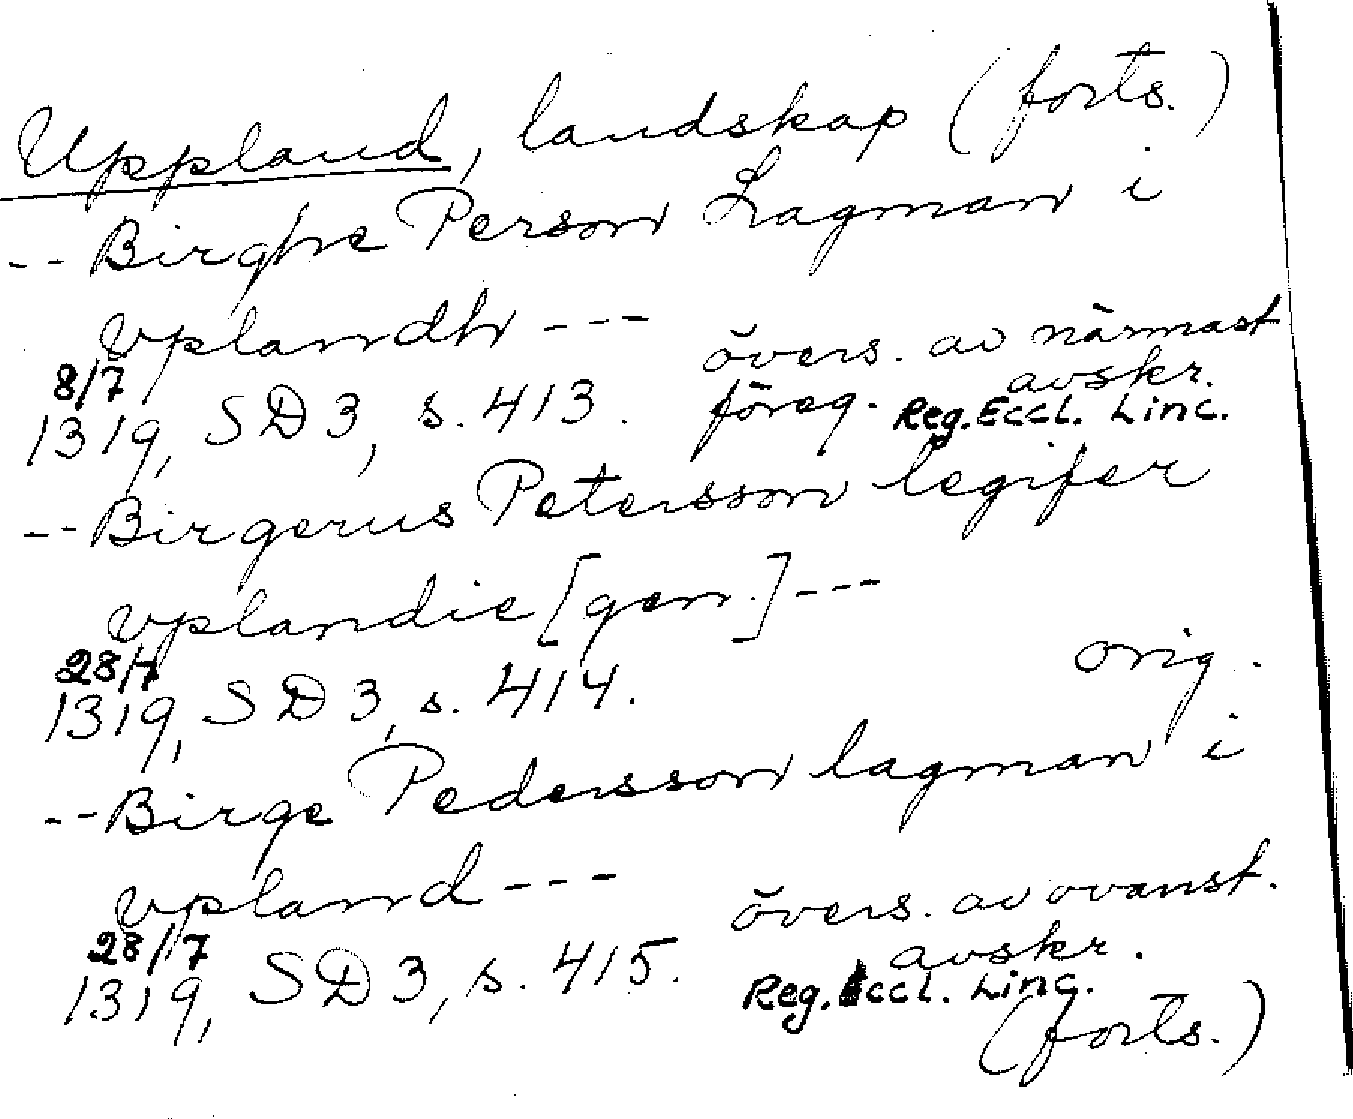 Uppland, landskap (forts.)
-- Birghe Person Lagman i
vplandh --- övers. av närmast
8/7 föreg. avskr.
1319, SD 3, s. 413. Reg. Eccl. Linc.
-- Birgerus Petersson legifer
vplandie [gen.] ---
28/7 orig.
1319, SD 3, s. 414.
-- Birge Pedersson lagman i
vpland --- övers. av ovanst.
28/7 avskr.
1319, SD 3, s. 415. Reg. Eccl. Linc.
(forts.)